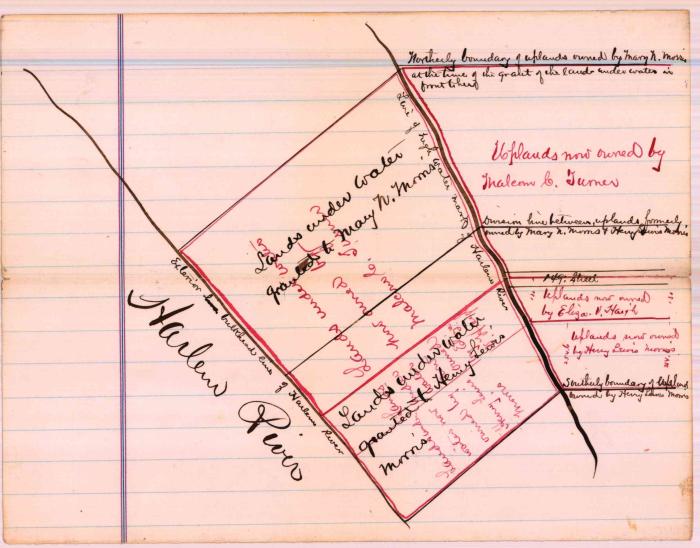 Northerly boundary of uplands owned by Mary N. Morris
at the time of the grant of the lands under water in
front thereof
Line of high water mark of Harlem River
Uplands now owned by
Malcom C. Turner
Lands under water
granted to Mary N. Morris
Lands under water
now owned by
Malcom C. Turner
Division line between uplands formerly
owned by Mary N. Morris & Henry Lewis Morris
149. Street
Uplands now owned
by Eliza. N. Haigh
Uplands now owned
by Henry Lewis Morris
Southerly boundary of Uplands
owned by Henry Lewis Morris
Exterior bulkhead line of Harlem River
Harlem River
Lands under water
granted to Henry Lewis
Morris
Lands under
water now
owned by
Henry Lewis
Morris